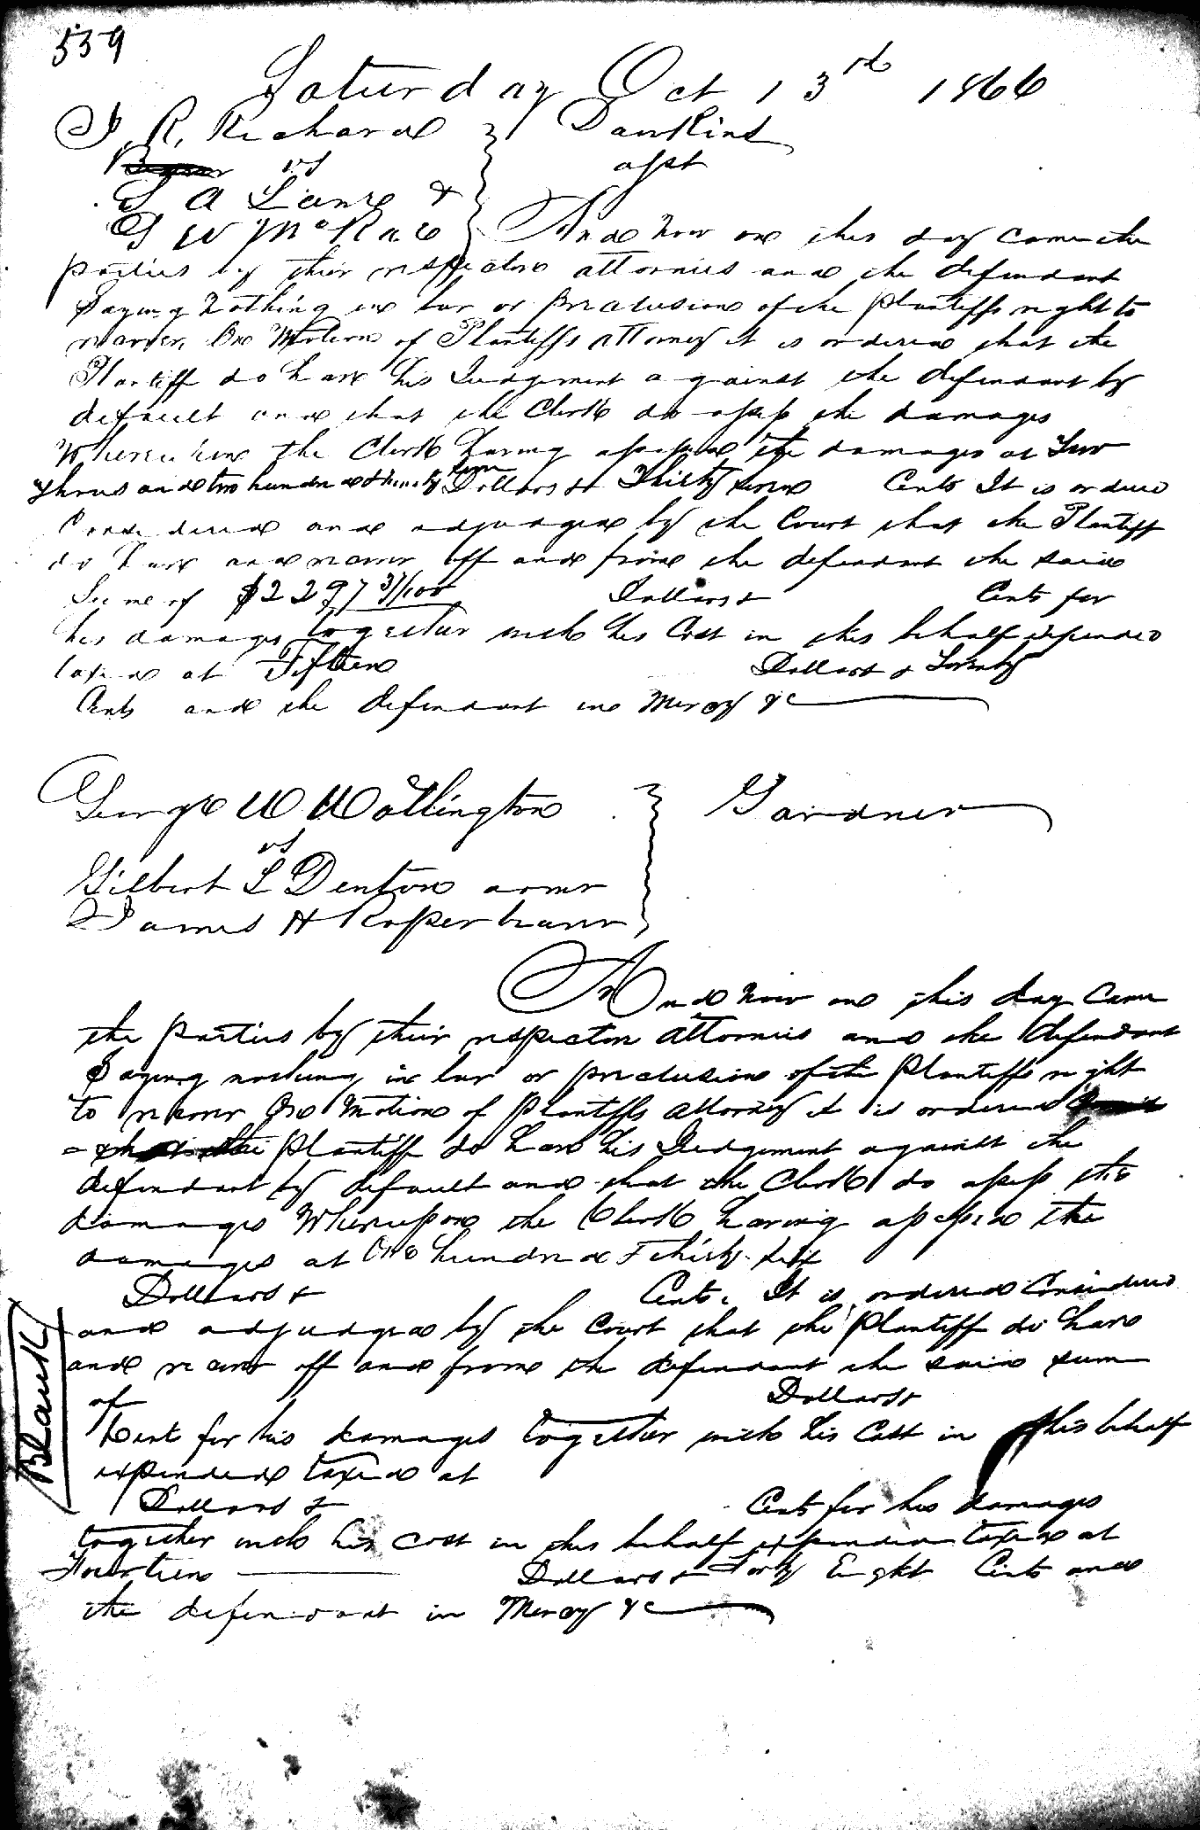 559
Saturday Oct 13rd 1866
J. R. Richard } Dawkins
vs asst
S A Lane &
G W McRae } And now on this day came the
parties by their respective attornies and the defendant
Saying Nothing in bar or preclusion of the Plantiffs right to
recover. On Motion of Plantiffs attorney it is ordered that the
Plantiff do have his Judgement against the defendant by
default and that the Clerk do assess the damages
Whereupon the Clerk having assessed the damages at Two
Thousand two hundred & Ninety Dollars & Thirty seven Cents It is ordered
Considered and adjudged by the Court that the Plantiff
do have and recover off and from the defendant the said
Sum of $2297 37/100 Dollars & Cents for
his damages together with his Cost in this behalf expended
taxed at Fifteen Dollars & Twenty
Cents and the defendant in Mercy &c
George W Wattington } Gardner
vs
Gilbert L Denton admr
James H Rasberry admr
And now on this day Came
the parties by their respective attornies and the defendant
Saying nothing in bar or preclusion of the Plantiffs right
to recover On Motion of Plantiffs attorney it is ordered
= the Plantiff do have his Judgement against the
defendant by default and that the Clerk do assess the
damages Whereupon the Clerk having assessed the
damages at One hundred & thirty six
Dollars & Cents. It is ordered Considered
and adjudged by the Court that the Plantiff do have
and recover off and from the defendant the said sum
of Dollars &
Cent for his damages together with his Cost in this behalf
expended taxed at
Dollars & Cents for his damages
together with his cost in this behalf expended taxed at
Fourteen Dollars & Forty Eight Cents and
the defendant in Mercy &c
Blank